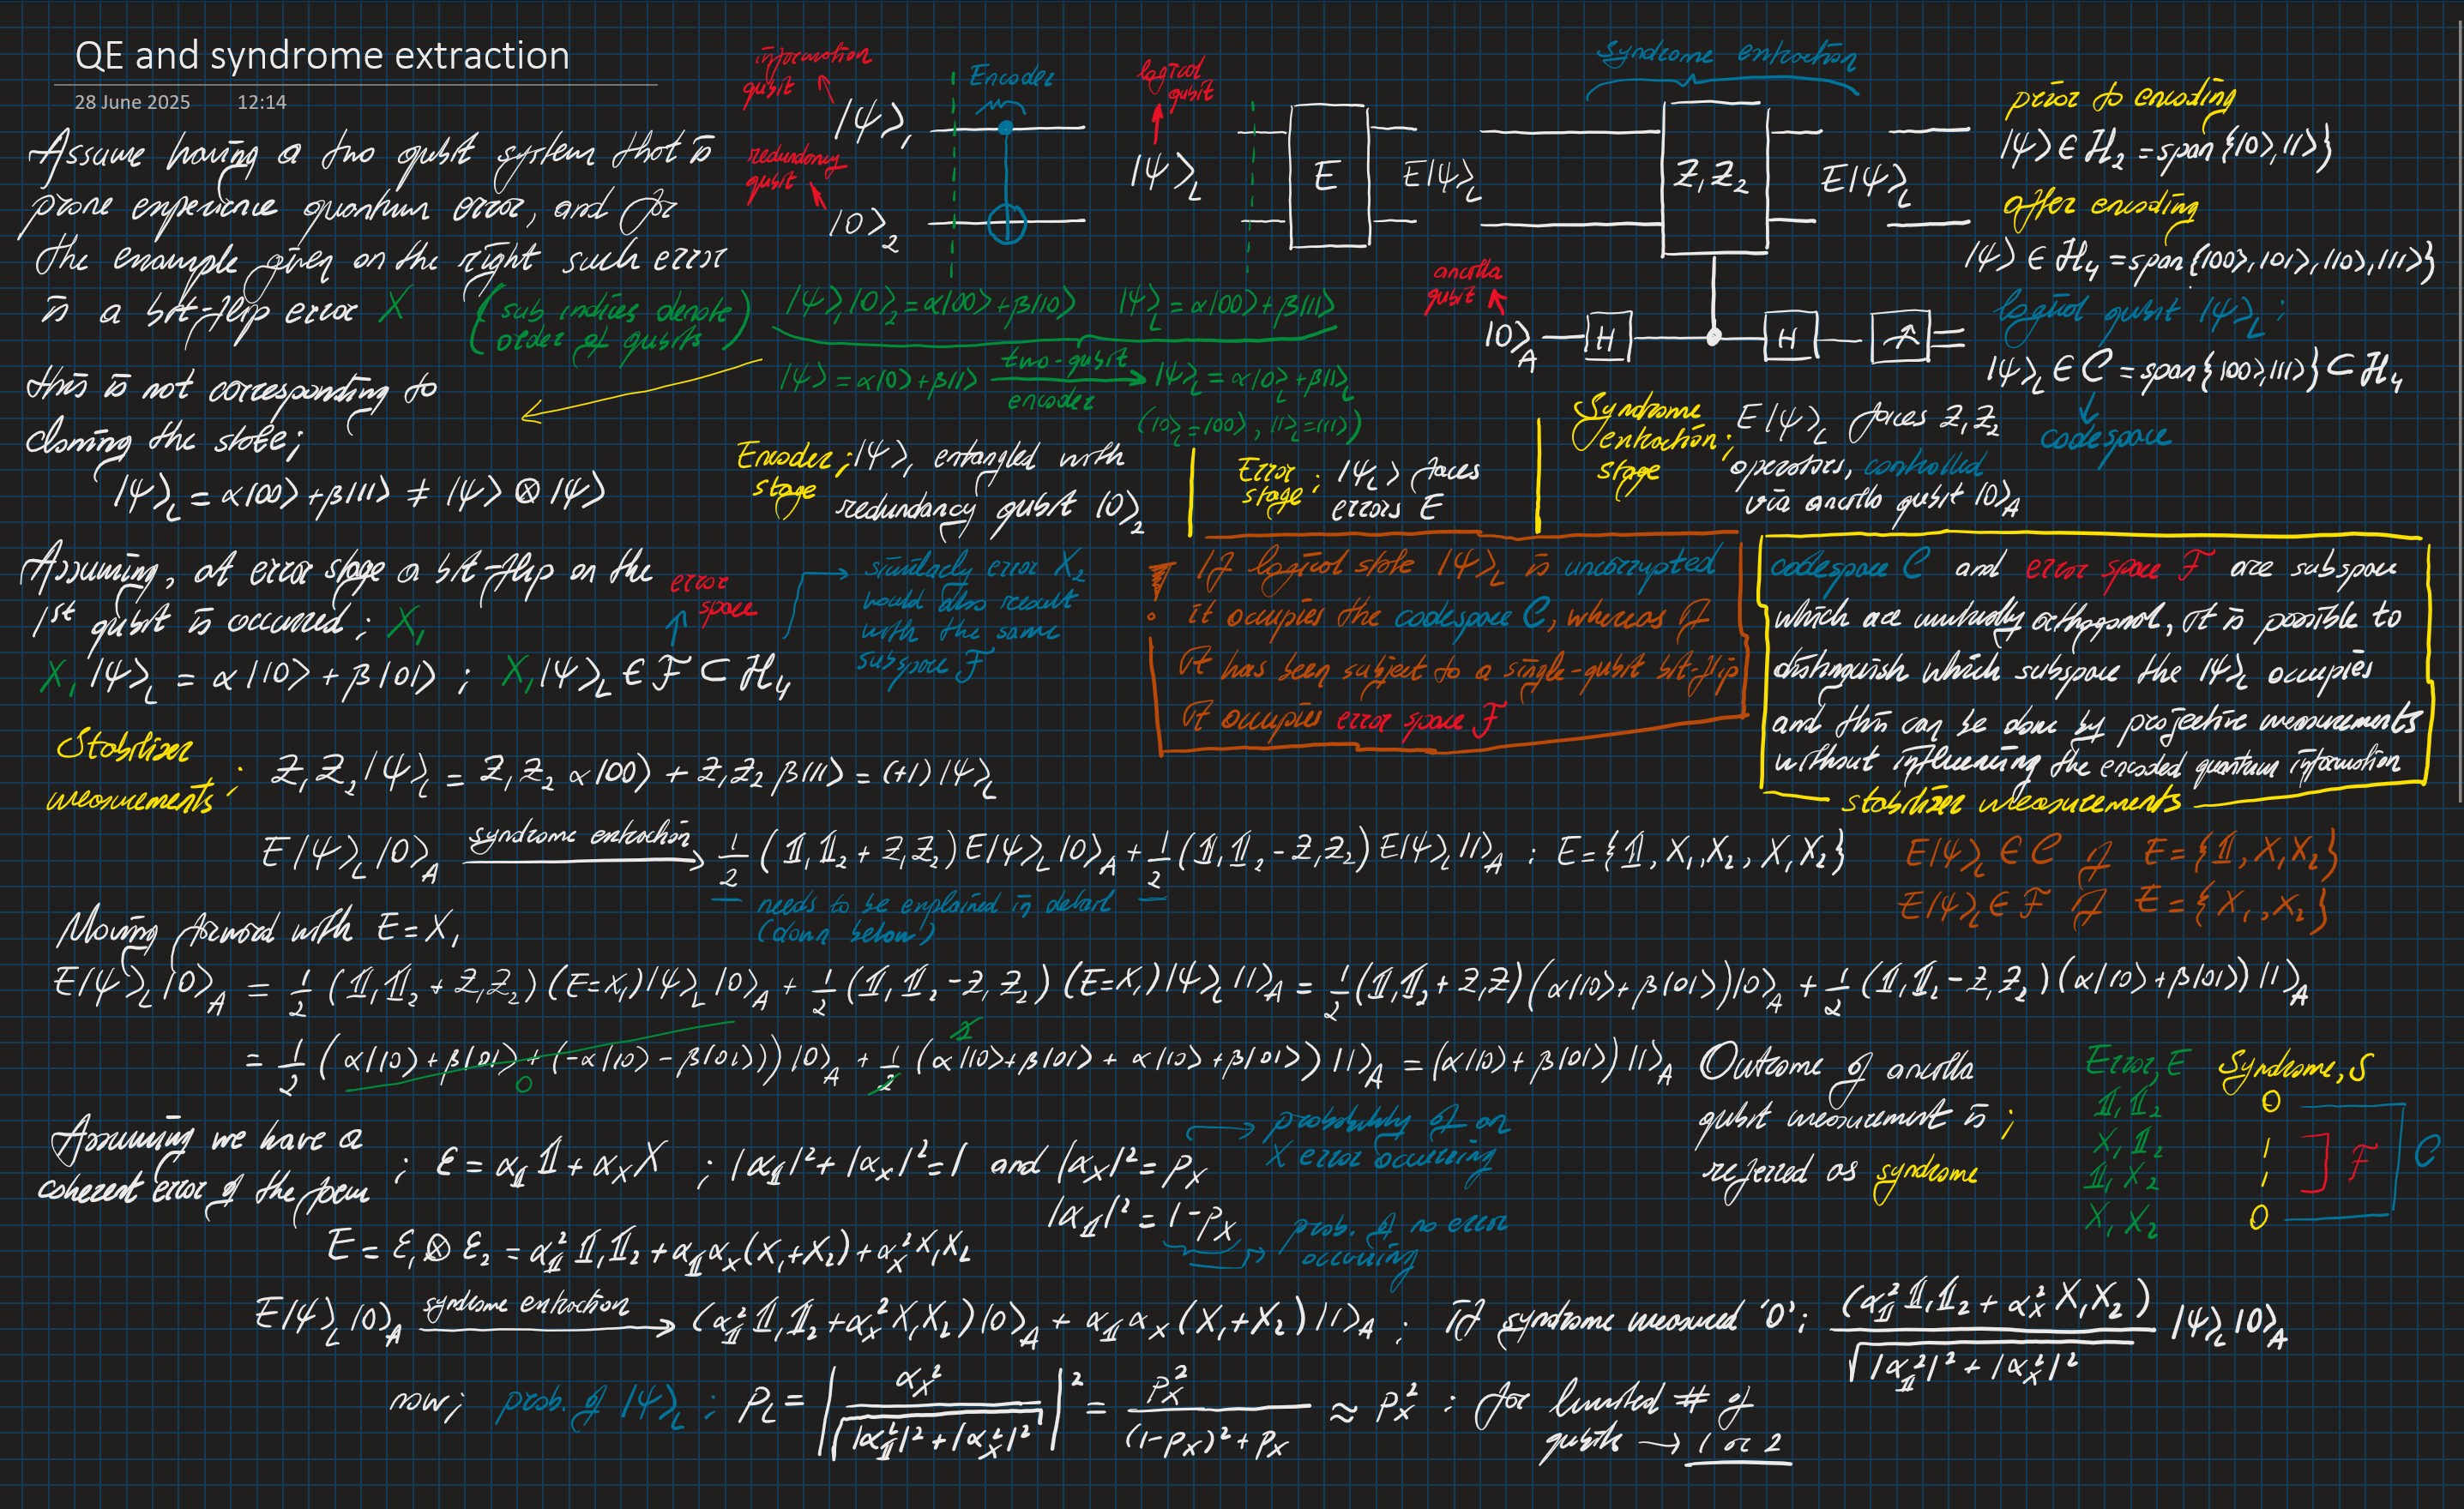 QE and syndrome extraction
28 June 2025 12:14
Assume having a two qubit system that is
prone experience quantum error, and for
the example given on the right such error
is a bit-flip error X
(sub indices denote
order of qubits)
this is not corresponding to
cloning the state;
|ψ⟩_L = α|00⟩ + β|11⟩ ≠ |ψ⟩ ⊗ |ψ⟩
information
qubit
|ψ⟩₁
redundancy
qubit
|0⟩₂
Encoder
logical
qubit
|ψ⟩_L
E
E|ψ⟩_L
Syndrome extraction
Z₁Z₂
E|ψ⟩_L
ancilla
qubit
|0⟩_A
H
H
|ψ⟩₁|0⟩₂ = α|00⟩ + β|10⟩ |ψ⟩_L = α|00⟩ + β|11⟩
|ψ⟩ = α|0⟩ + β|1⟩ two-qubit encoder → |ψ⟩_L = α|0⟩_L + β|1⟩_L
(|0⟩_L = |00⟩, |1⟩_L = |11⟩)
prior to encoding
|ψ⟩ ∈ H₂ = span{|0⟩, |1⟩}
after encoding
|ψ⟩ ∈ H₄ = span{|00⟩, |01⟩, |10⟩, |11⟩}
logical qubit |ψ⟩_L ;
|ψ⟩_L ∈ C = span{|00⟩, |11⟩} ⊂ H₄
codespace
Encoder stage ; |ψ⟩₁ entangled with
redundancy qubit |0⟩₂
Error stage ; |ψ_L⟩ faces
errors E
Syndrome extraction stage ; E|ψ⟩_L faces Z₁Z₂
operators, controlled
via ancilla qubit |0⟩_A
Assuming, at error stage a bit-flip on the
1st qubit is occurred ; X₁
X₁|ψ⟩_L = α|10⟩ + β|01⟩ ; X₁|ψ⟩_L ∈ F ⊂ H₄
error
space
similarly error X₂
would also result
with the same
subspace F
! If logical state |ψ⟩_L is uncorrupted
it occupies the codespace C, whereas if
it has been subject to a single-qubit bit-flip
it occupies error space F
codespace C and error space F are subspace
which are mutually orthogonal, it is possible to
distinguish which subspace the |ψ⟩_L occupies
and this can be done by projective measurements
without influencing the encoded quantum information
stabilizer measurements
Stabilizer
measurements ; Z₁Z₂|ψ⟩_L = Z₁Z₂ α|00⟩ + Z₁Z₂ β|11⟩ = (+1)|ψ⟩_L
E|ψ⟩_L|0⟩_A syndrome extraction → 1/2 (𝟙₁𝟙₂ + Z₁Z₂) E|ψ⟩_L|0⟩_A + 1/2 (𝟙₁𝟙₂ - Z₁Z₂) E|ψ⟩_L|1⟩_A : E = {𝟙, X₁, X₂, X₁X₂}
E|ψ⟩_L ∈ C if E = {𝟙, X₁X₂}
E|ψ⟩_L ∈ F if E = {X₁, X₂}
— needs to be explained in detail —
(down below)
Moving forward with E = X₁
E|ψ⟩_L|0⟩_A = 1/2 (𝟙₁𝟙₂ + Z₁Z₂)(E=X₁)|ψ⟩_L|0⟩_A + 1/2 (𝟙₁𝟙₂ - Z₁Z₂)(E=X₁)|ψ⟩_L|1⟩_A = 1/2 (𝟙₁𝟙₂ + Z₁Z)(α|10⟩ + β|01⟩)|0⟩_A + 1/2 (𝟙₁𝟙₂ - Z₁Z₂)(α|10⟩ + β|01⟩)|1⟩_A
= 1/2 (α|10⟩ + β|01⟩ + (-α|10⟩ - β|01⟩))|0⟩_A + 1/2 (α|10⟩ + β|01⟩ + α|10⟩ + β|01⟩)|1⟩_A = (α|10⟩ + β|01⟩)|1⟩_A
0
2
Outcome of ancilla
qubit measurement is ;
referred as syndrome
Error, E Syndrome, S
𝟙₁𝟙₂ 0
X₁𝟙₂ 1
𝟙₁X₂ 1
X₁X₂ 0
F
C
Assuming we have a
coherent error of the form ; ℰ = α_𝟙 𝟙 + α_X X ; |α_𝟙|² + |α_X|² = 1 and |α_X|² = p_X
probability of an
X error occurring
|α_𝟙|² = 1 - p_X
prob. of no error
occurring
E = ℰ₁ ⊗ ℰ₂ = α_𝟙² 𝟙₁𝟙₂ + α_𝟙 α_X (X₁ + X₂) + α_X² X₁X₂
E|ψ⟩_L|0⟩_A syndrome extraction → (α_𝟙² 𝟙₁𝟙₂ + α_X² X₁X₂)|0⟩_A + α_𝟙 α_X (X₁ + X₂)|1⟩_A ; if syndrome measured '0' ; (α_𝟙² 𝟙₁𝟙₂ + α_X² X₁X₂) / √(|α_𝟙²|² + |α_X²|²) |ψ⟩_L|0⟩_A
now; prob. of |ψ⟩_L ; p_L = |α_X² / √(|α_𝟙²|² + |α_X²|²)|² = p_X² / ((1-p_X)² + p_X) ≈ p_X² : for limited # of
qubits → 1 or 2